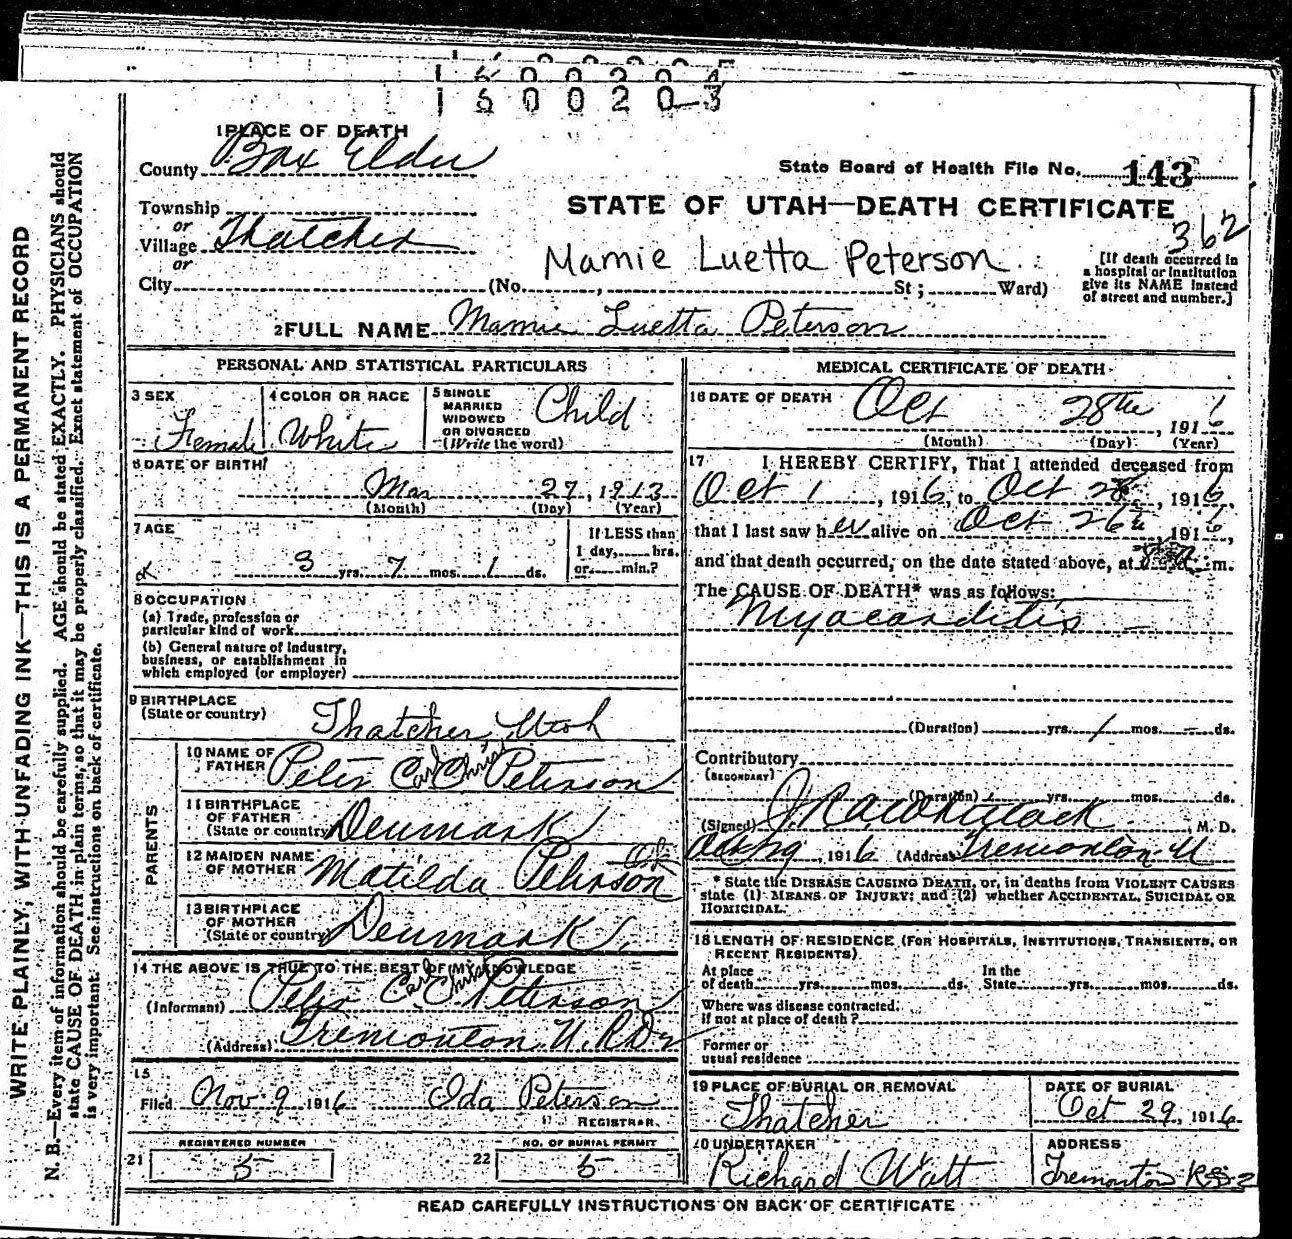 1600204
1600203
1 PLACE OF DEATH
County Box Elder
State Board of Health File No. 143
Township
or
Village Thatcher
or
City (No. , St; Ward)
STATE OF UTAH—DEATH CERTIFICATE
362
Mamie Luetta Peterson
[If death occurred in
a hospital or institution
give its NAME instead
of street and number.]
2 FULL NAME Mamie Luetta Peterson
PERSONAL AND STATISTICAL PARTICULARS
3 SEX
Female
4 COLOR OR RACE
White
5 SINGLE
MARRIED
WIDOWED
OR DIVORCED
(Write the word)
Child
6 DATE OF BIRTH
Mar 27, 1913
(Month) (Day) (Year)
7 AGE
3 yrs. 7 mos. 1 ds.
If LESS than
1 day, hrs.
or min.?
8 OCCUPATION
(a) Trade, profession or
particular kind of work
(b) General nature of industry,
business, or establishment in
which employed (or employer)
9 BIRTHPLACE
(State or country)
Thatcher, Utah
PARENTS
10 NAME OF
FATHER
Peter Carl Christ Peterson
11 BIRTHPLACE
OF FATHER
(State or country)
Denmark
12 MAIDEN NAME
OF MOTHER
Matilda Peterson
13 BIRTHPLACE
OF MOTHER
(State or country)
Denmark.
14 THE ABOVE IS TRUE TO THE BEST OF MY KNOWLEDGE
(Informant) Peter Carl Christ Peterson
(Address) Tremonton U. R.D2
15
Filed Nov 9 1916 Ida Peterson
REGISTRAR.
REGISTERED NUMBER
21 5
NO. OF BURIAL PERMIT
22 5
MEDICAL CERTIFICATE OF DEATH
16 DATE OF DEATH
Oct 28th, 1916
(Month) (Day) (Year)
17 I HEREBY CERTIFY, That I attended deceased from
Oct 1, 1916, to Oct 28, 1916,
that I last saw her alive on Oct 26th, 1916,
and that death occurred, on the date stated above, at m.
The CAUSE OF DEATH* was as follows:
Myocarditis
(Duration) yrs. 1 mos. ds.
Contributory
(SECONDARY)
(Duration) yrs. mos. ds.
(Signed) , M. D.
Oct 29, 1916 (Address) Tremonton U
* State the DISEASE CAUSING DEATH, or, in deaths from VIOLENT CAUSES
state (1) MEANS OF INJURY; and (2) whether ACCIDENTAL, SUICIDAL OR
HOMICIDAL.
18 LENGTH OF RESIDENCE (FOR HOSPITALS, INSTITUTIONS, TRANSIENTS, OR
RECENT RESIDENTS)
At place
of death yrs. mos. ds.
In the
State yrs. mos. ds.
Where was disease contracted,
if not at place of death?
Former or
usual residence
19 PLACE OF BURIAL OR REMOVAL
Thatcher
DATE OF BURIAL
Oct 29, 1916
20 UNDERTAKER
Richard Watt
ADDRESS
Tremonton
READ CAREFULLY INSTRUCTIONS ON BACK OF CERTIFICATE
WRITE PLAINLY, WITH UNFADING INK—THIS IS A PERMANENT RECORD
N. B.—Every item of information should be carefully supplied. AGE should be stated EXACTLY. PHYSICIANS should
state CAUSE OF DEATH in plain terms, so that it may be properly classified. Exact statement of OCCUPATION
is very important. See instructions on back of certificate.